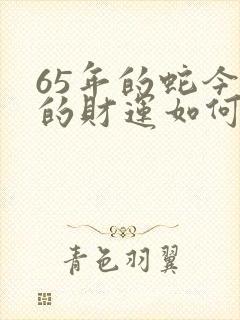 65年的蛇今
的財運如何
青色羽翼